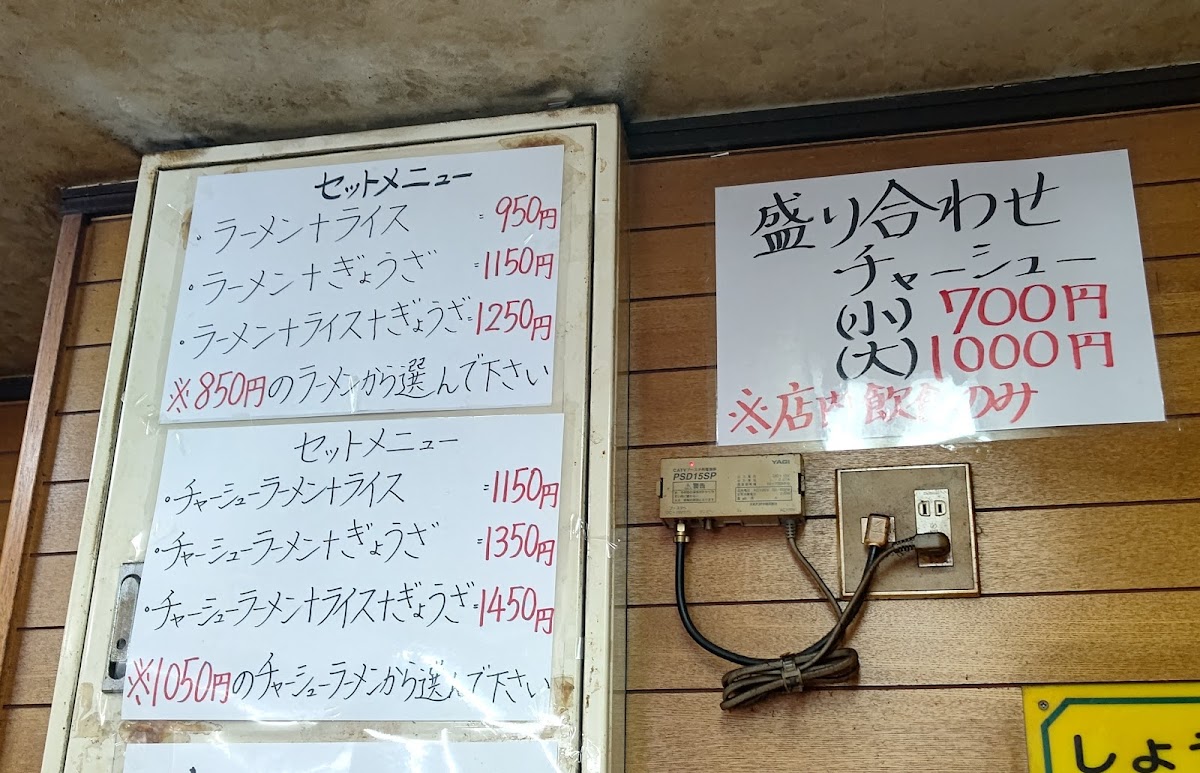 セットメニュー
・ラーメン+ライス = 950円
・ラーメン+ぎょうざ = 1150円
・ラーメン+ライス+ぎょうざ = 1250円
※850円のラーメンから選んで下さい
セットメニュー
・チャーシューラーメン+ライス = 1150円
・チャーシューラーメン+ぎょうざ = 1350円
・チャーシューラーメン+ライス+ぎょうざ = 1450円
※1050円のチャーシューラーメンから選んで下さい
盛り合わせ
チャーシュー
(小) 700円
(大) 1000円
※店内飲食のみ
YAGI
PSD15SP
警告
しょう